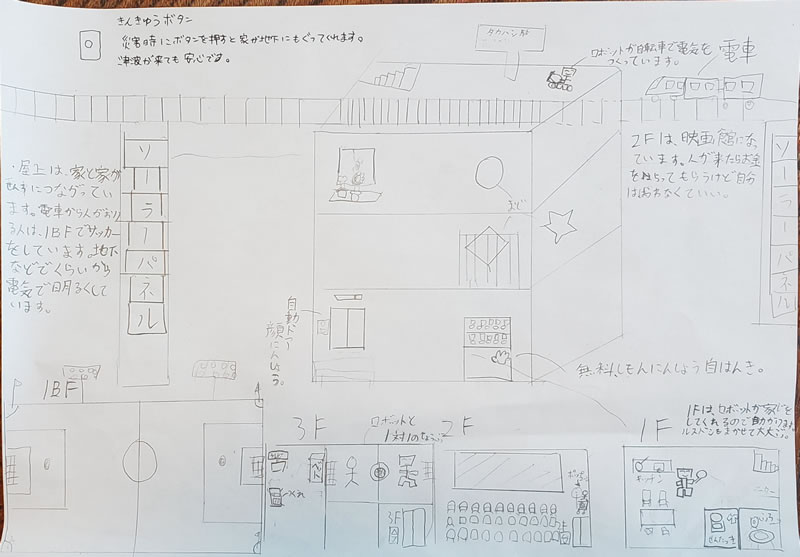 きんきゅうボタン
災害時にボタンを押すと家が地下にもぐってくれます。
津波が来ても安心です。
ロボットが自転車で電気を
つくっています。
電車
2Fは、映画館になっ
ています。人が来たらお金を
はらってもらうけど自分
ははらわなくていい。
・屋上は、家と家が
せんすにつながってい
ます。電車からんがおり
る人は、1BFでサッカー
をしています。地下
などでくらいから
電気で明るくして
います。
ソーラーパネル
ソーラーパネル
まど
自動ドアー
顔にんしょう。
無料、しもんにんしょう自はんき。
1BF
3F
ロボットと
1対1の
2F
1F
1Fは、ロボットが家じを
してくれるので
ルスバンをまかせて大丈ぶ。
キッチン
3F